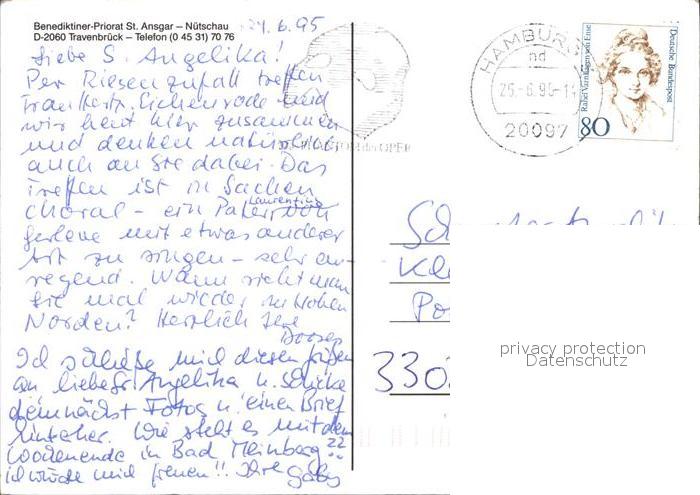 Benediktiner-Priorat St. Ansgar – Nütschau
D-2060 Travenbrück – Telefon (0 45 31) 70 76
24.6.95
Liebe S. Angelika!
Per Riesenzufall treffen
Frau und
wir heut hier zusammen
und denken natürlich
auch an Sie dabei. Das
Treffen ist in Sachen
Choral – ein Pater Laurentius von
mit etwas anderer
Art zu singen – sehr an-
regend. Wann sieht man
Sie mal wieder im Hohen
Norden? Herzlich Ihre
Ich schließe mich diesen Grüßen
an liebe S. Angelika u. schicke
demnächst Fotos u. einen Brief
hinterher. Wie steht es mit dem
Wochenende in Bad Meinberg??
ich würde mich freuen!! Ihre Gaby
HAMBURG
nd
26.-6.95-11
20097
Rahel Varnhagen von Ense
Deutsche Bundespost
80
Sch
Kl
Po
330
privacy protection
Datenschutz